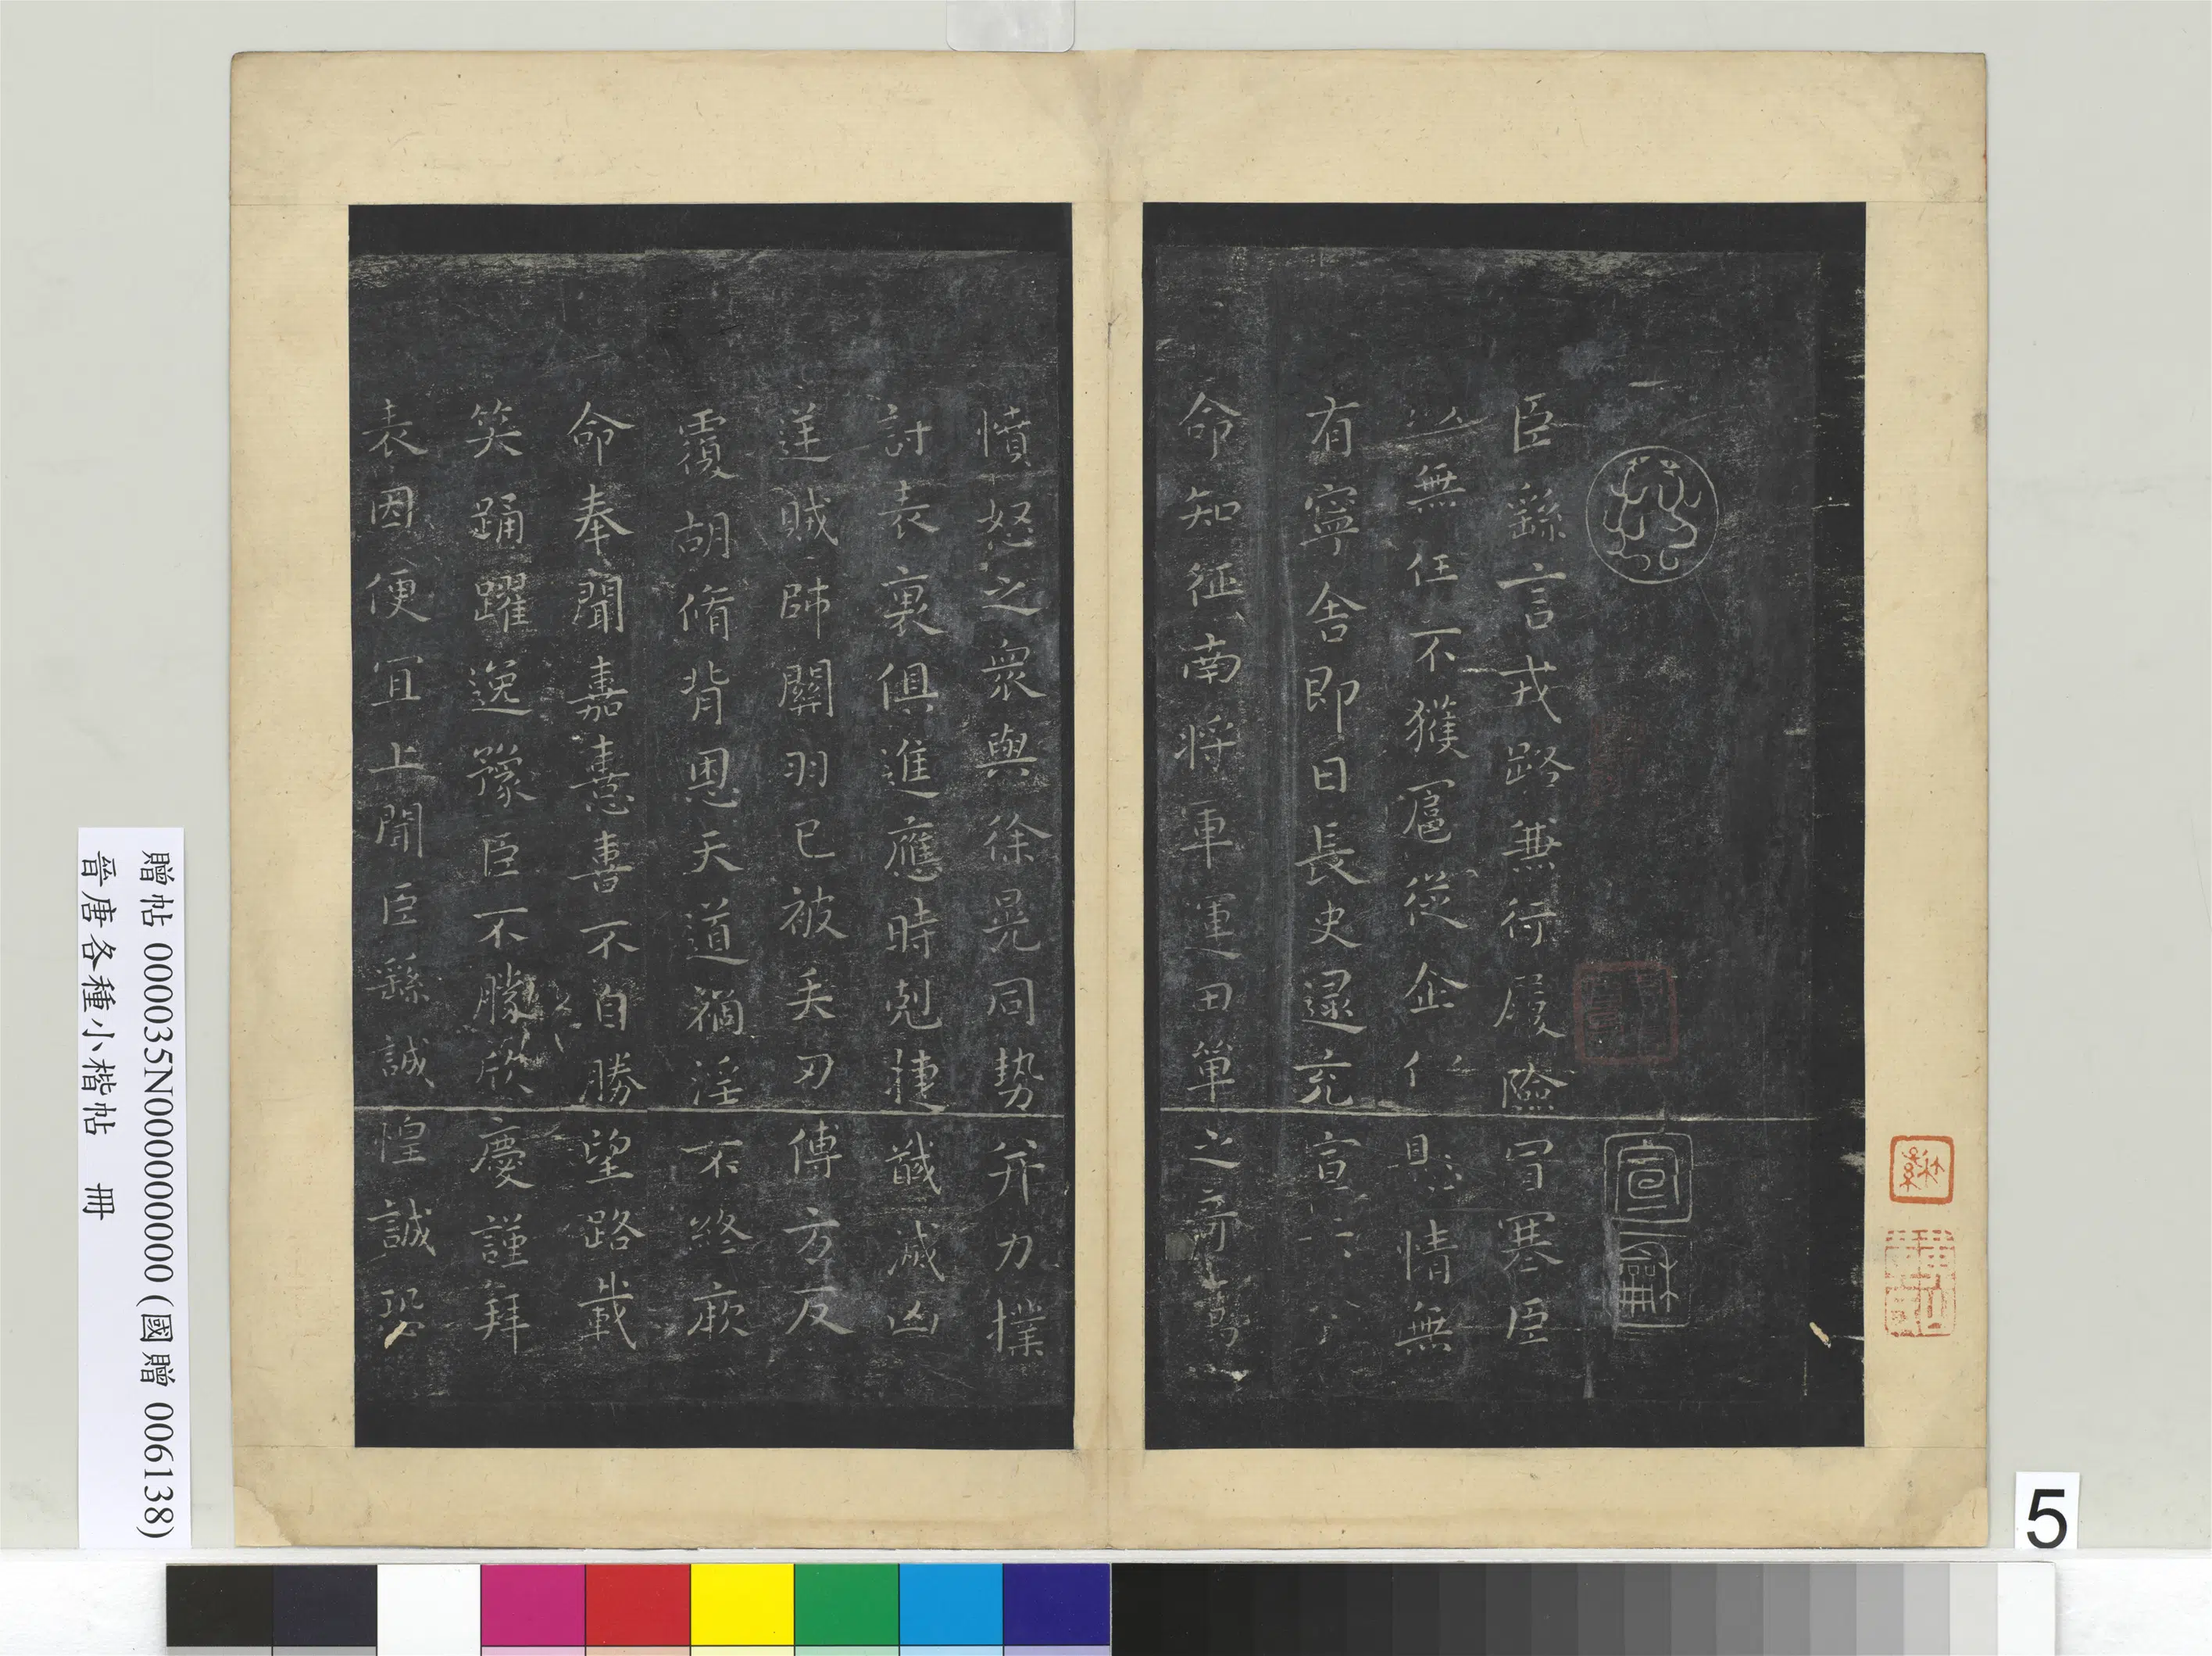 臣繇言戎路兼行履險冐寒臣
以無任不獲扈從企佇懸情無
有寧舍即日長史逯充宣
命知征南將軍運田單之奇
憤怒之衆與徐晃同勢并力撲
討表裏俱進應時剋捷馘滅凶
逆賊帥關羽已被矢刃傅方反
覆胡脩背恩天道禍淫不終厥
命奉聞嘉憙喜不自勝望路載
笑踊躍逸豫臣不勝欣慶謹拜
表因便宜上聞臣繇誠惶誠恐
宣龢
贈帖 000035N000000000 (國贈 006138)
晉唐各種小楷帖 冊
5